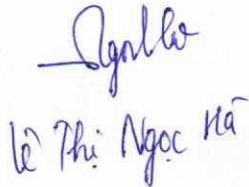 Lê Thị Ngọc Hà